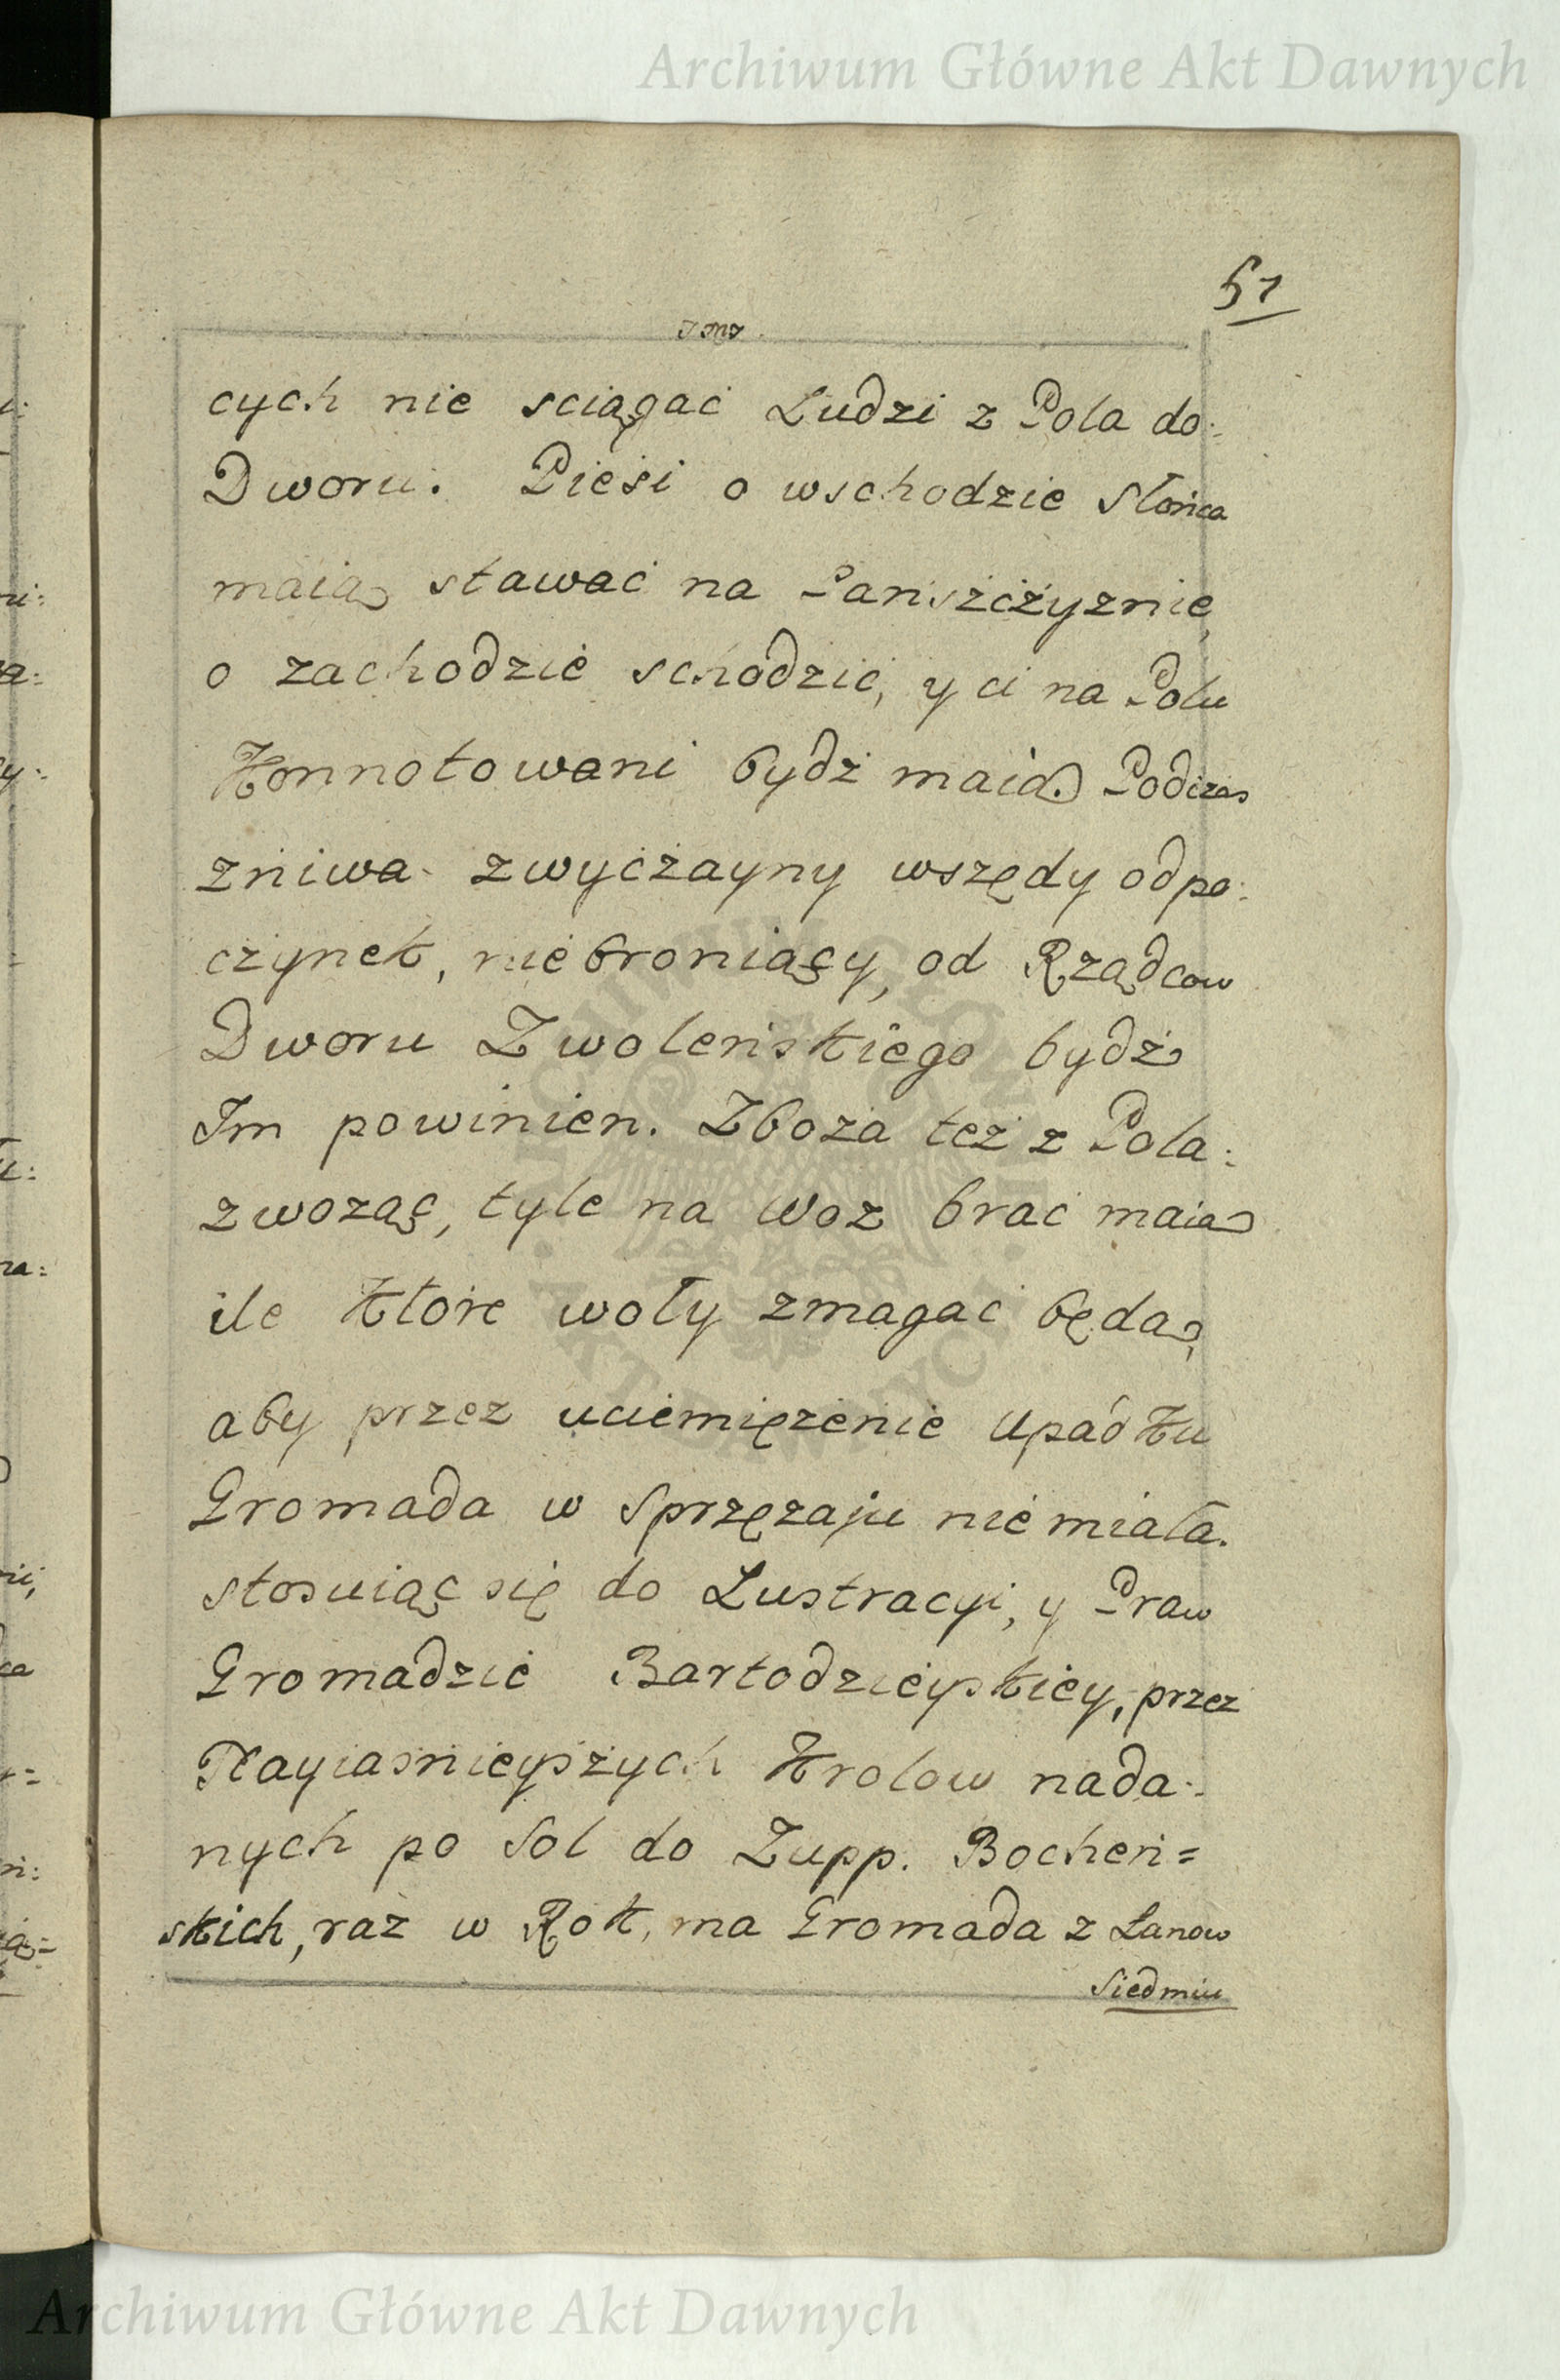 Archiwum Główne Akt Dawnych
51
cych nie sciągać Ludzi z Pola do:
Dworu. Pieśi o wschodzie Słońca
maią stawać na Panszczyznie,
o zachodzie schodzić, y ci na Polu
Konnotowani bydź maią. Podczas
zniwa zwyczayny wszędy odpo:
czynek, niebroniący, od Rządcow
Dworu Zwoleńskiego bydź
Im powinien. Zboża też z Pola:
zwożąc, tyle na woz brać maią
ile które woły zmagać będą,
aby przez uciemiężenie upadku
Gromada w Sprzężaju nie miała.
stosuiąc się do Lustracyi, y Praw
Gromadzie Bartodzieyskiey, przez
Nayiasnieyszych Krolow nada:
nych po Sol do Zupp. Bocheń=
skich, raz w Rok, ma Gromada z Łanow
Siedmiu
Archiwum Główne Akt Dawnych